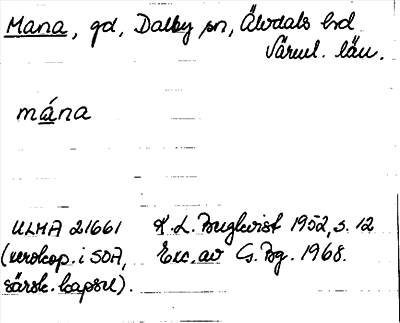 Mana, gd, Dalby sn, Älvdals hd
Värml. län.
mána
ULMA 21661 K.L. Bugkvist 1952, s. 12
(xerokop. i SOA, Exc. av G. Bg. 1968.
särsk. kapsel).